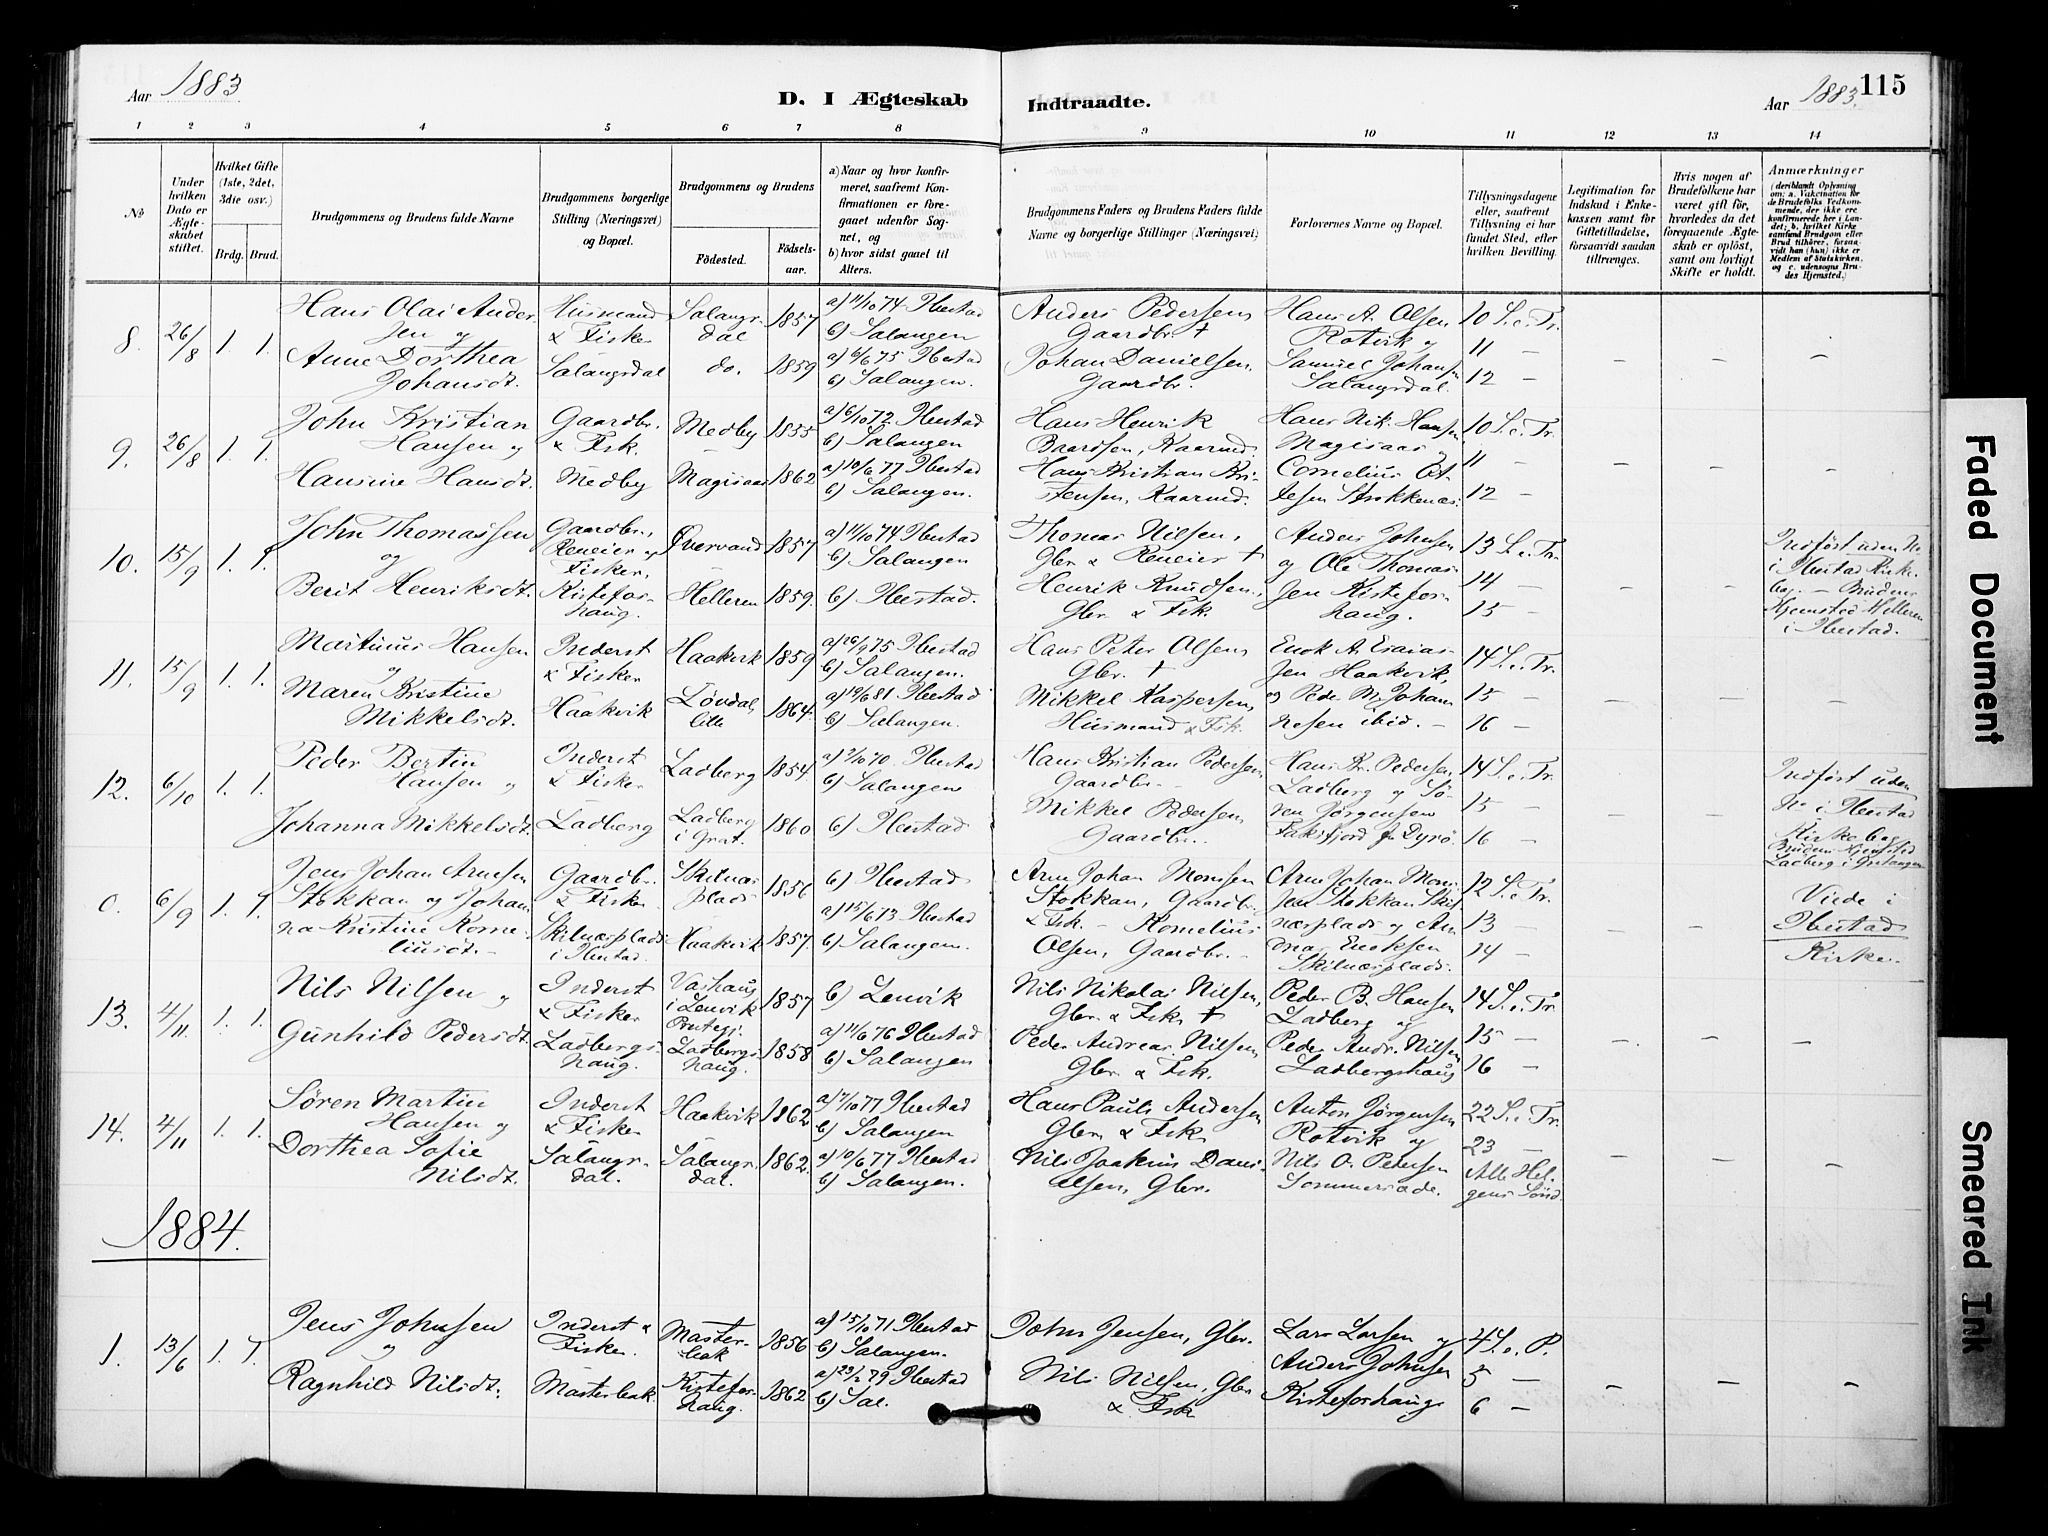 Aar 1883
D. I Ægteskab
Indtraadte.
Aar 1883.
115
1 2 3 4 5 6 7 8 9 10 11 12 13 14
№
Under hvilken Dato er Ægteskabet stiftet.
Hvilket Gifte (1ste, 2det, 3die osv.)
Brdg. Brud.
Brudgommens og Brudens fulde Navne
Brudgommens borgerlige Stilling (Næringsvei) og Bopæl.
Brudgommens og Brudens
Födested.
Födselsaar.
a) Naar og hvor konfirmeret, saafremt Konfirmationen er foregaaet udenfor Sognet, og
b) hvor sidst gaaet til Alters.
Brudgommens Faders og Brudens Faders fulde Navne og borgerlige Stillinger (Næringsvei)
Forlovernes Navne og Bopæl.
Tillysningsdagene eller, saafremt Tillysning ei har fundet Sted, efter hvilken Bevilling.
Legitimation for Indskud i Enkekassen samt for Giftetilladelse, forsaavidt saadan tiltrænges.
Hvis nogen af Brudefolkene har været gift för, hvorledes da det foregaaende Ægteskab er oplöst, samt om lovligt Skifte er holdt.
Anmærkninger
(deriblandt Oplysning om: a. Vakcination for Brudefolks Vedkommende, der ikke ere konfirmerede her i Landet; b. hvilket Kirkesamfund Brudgom eller Brud tilhörer, forsaavidt han (hun) ikke er Medlem af Statskirken, og c. udensogns Brudes Hjemsted.)
8. 26/8 1. 1.
Hans Olai Andersen og
Anne Dorthea Johansdt.
Husmand & Fisker
Salangsdal
Salangsdal 1857
do. 1859
a) 11/10 74 Ibestad
b) Salangen
a) 6/6 75 Ibestad
b) Salangen.
Anders Pedersen, Gaardbr. †
Johan Danielsen, Gaardbr.
Hans A. Olsen Rotvik og
Samuel Johansen Salangsdal.
10 S. e. Tr.
11 —
12 —
9. 26/8 1. 1.
John Kristian Hansen og
Hansine Hansdt.
Gaardbr. & Fisk.
Medby
Medby 1855
Magisaas 1862
a) 6/10 72 Ibestad
b) Salangen
a) 10/6 77 Ibestad
b) Salangen.
Hans Henrik Baardsen, Kaarmd.
Hans Kristian Kristensen, Kaarmd.
Hans Nik. Hansen Magisaas og
Cornelius Ottesen Strokkenæs.
10 S. e. Tr.
11 —
12 —
10. 15/9 1. 1.
John Thomassen
og
Berit Henriksdt.
Gaardbr., Reneier og Fisker,
Kisteforhaug.
Øvervand 1857
Helleren 1859.
a) 11/10 74 Ibestad
b) Salangen
b) Ibestad.
Thomas Nilsen, Gbr. & Reneier †
Henrik Knudsen, Gbr. & Fsk.
Anders Johnsen
og Ole Thomassen Kisteforhaug.
13 S. e. Tr.
14 —
15 —
Indført uden No i Ibestad Kirkebog. — Brudens Hjemsted Helleren i Ibestad.
11. 15/9 1. 1.
Martinus Hansen
og
Maren Kristine Mikkelsdt.
Inderst & Fisker
Haakvik
Haakvik 1859
Løvdal lille 1864.
a) 26/9 75 Ibestad
b) Salangen.
a) 19/6 81 Ibestad
b) Salangen.
Hans Peter Olsen, Gbr. †
Mikkel Kaspersen, Husmand & Fsk.
Enok A. Esaiassen Haakvik,
og Peder M. Johannesen ibid. —
14 S. e. Tr.
15 —
16 —
12. 6/10 1. 1.
Peder Bertin Hansen og
Johanna Mikkelsdt.
Inderst & Fisker
Ladberg
Ladberg 1854.
Ladberg i Grat. 1860
a) 2/10 70 Ibestad
b) Salangen
b) Ibestad
Hans Kristian Pedersen, Gaardbr. —
Mikkel Pedersen, Gaardbr.
Hans Kr. Pedersen, Ladberg og Søren Jørgensen Faksfjord fr. Dyrø.
14 S. e. Tr.
15 —
16 —
Indført uden No i Ibestad Kirkebog Brudens Hjemsted Ladberg i Gratangen
0. 6/9 1. 1.
Jens Johan Arnesen Stokkan og Johanna Kristine Korneliusdt. —
Gaardbr. & Fisker
Skilnæsplads i Ibestad.
Skilnæsplads 1856
Haakvik 1857.
b) Ibestad
a) 15/6 73 Ibestad
b) Salangen.
Arne Johan Monsen Stokkan, Gaardbr. & Fsk. — Kornelius Olsen, Gaardbr. —
Arne Johan Monsen Stokkan Skilnæsplads og Andreas Eriksen Skilnæsplads.
12 S. e. Tr.
13 —
14 —
Viede i Ibestad Kirke.
13. 4/11 1. 1.
Nils Nilsen og
Gunhild Pedersdt.
Inderst & Fisker
Ladbergshaug.
Vashaug i Lenvik Prstegj. 1857
Ladbergshaug. 1858
b) Lenvik
a) 11/6 76 Ibestad
b) Salangen
Nils Nikolai Nilsen, Gbr. & Fsk. †
Peder Andreas Nilsen, Gbr. & Fsk.
Peder B. Hansen Ladberg og
Peder Andr. Nilsen Ladbergshaug
14 S. e. Tr.
15 —
16 —
14. 4/11 1. 1.
Søren Martin Hansen og
Dorthea Sofie Nilsdt.
Inderst & Fisker
Salangsdal.
Haakvik 1862
Salangsdal. 1862.
a) 7/10 77 Ibestad
b) Salangen
a) 10/6 77 Ibestad
b) Salangen.
Hans Pauls Andersen Gbr. & Fsk.
Nils Joakim Danielsen, Gbr.
Anton Jørgensen Rotvik og
Nils O. Petersen Sommersæde.
22 S. e. Tr.
23 —
Alle Helgens Sønd.
1884.
1. 13/6 1. 1.
Jens Johnsen
og
Ragnhild Nilsdt.
Inderst & Fisker.
Masterbak.
Masterbak 1856
Kisteforhaug. 1862
a) 15/10 71 Ibestad
b) Salangen.
a) 29/2 79 Ibestad
b) Sal.
John Jensen, Gbr.
Nils Nilsen, Gbr. & Fsk
Lars Larsen og
Anders Johnsen
Kisteforhaug
4 S. e. P.
5 —
6 —
Faded Document
Smeared Ink